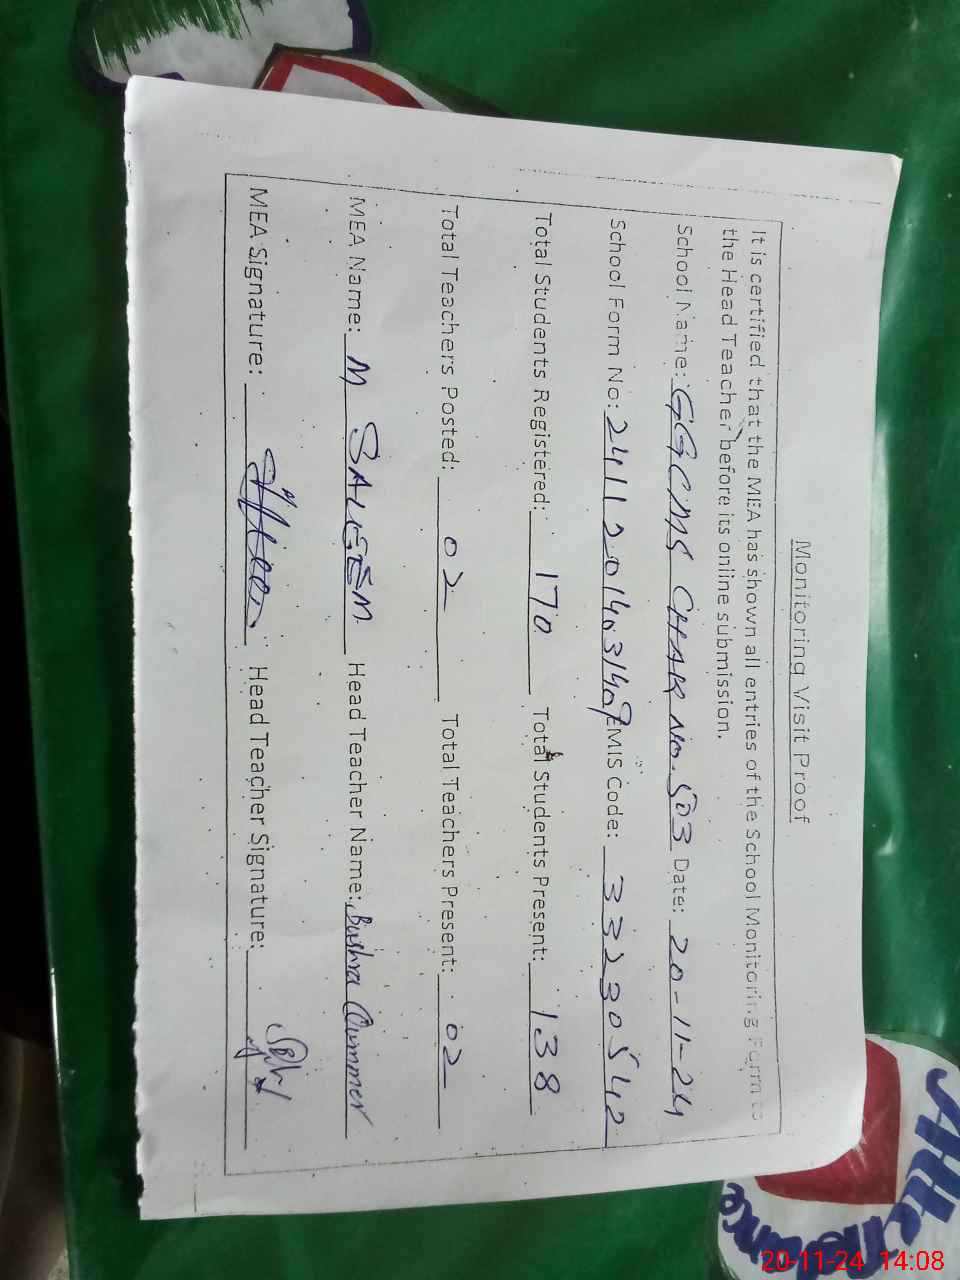 Monitoring Visit Proof
It is certified that the MEA has shown all entries of the School Monitoring Form to
the Head Teacher before its online submission.
School Name: GGCMS CHAK NO. 503 Date: 20-11-24
School Form No: EMIS Code: 33230542
Total Students Registered: 170 Total Students Present: 138
Total Teachers Posted: 02 Total Teachers Present: 02
MEA Name: M SALEEM Head Teacher Name: Bushra Qummer
MEA Signature: Head Teacher Signature:
Attendance
20-11-24 14:08